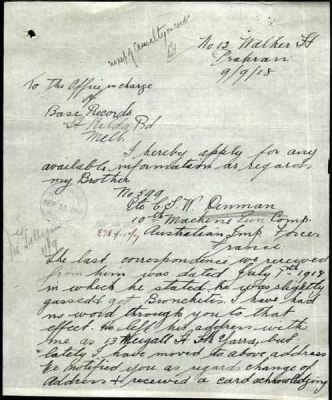 No 12 Walker St
Prahran
9/9/18
To the Office in charge
of
Base Records
St Kilda Rd
Melb.
I hereby apply for any
available information as regards
my Brother
No 599
Pte C. S. W. Denman
10th Machine Gun Comp.
Australian Imp. Forces
France
The last correspondence we received
from him was dated July 7th 1918
in which he stated he was slightly
gassed & got Bronchitis. I have had
no word through you to that
effect. He left his address with
me as 13 St Yarra, but
lately I have moved to above address
We notified you as regard change of
address + received a card acknowledging